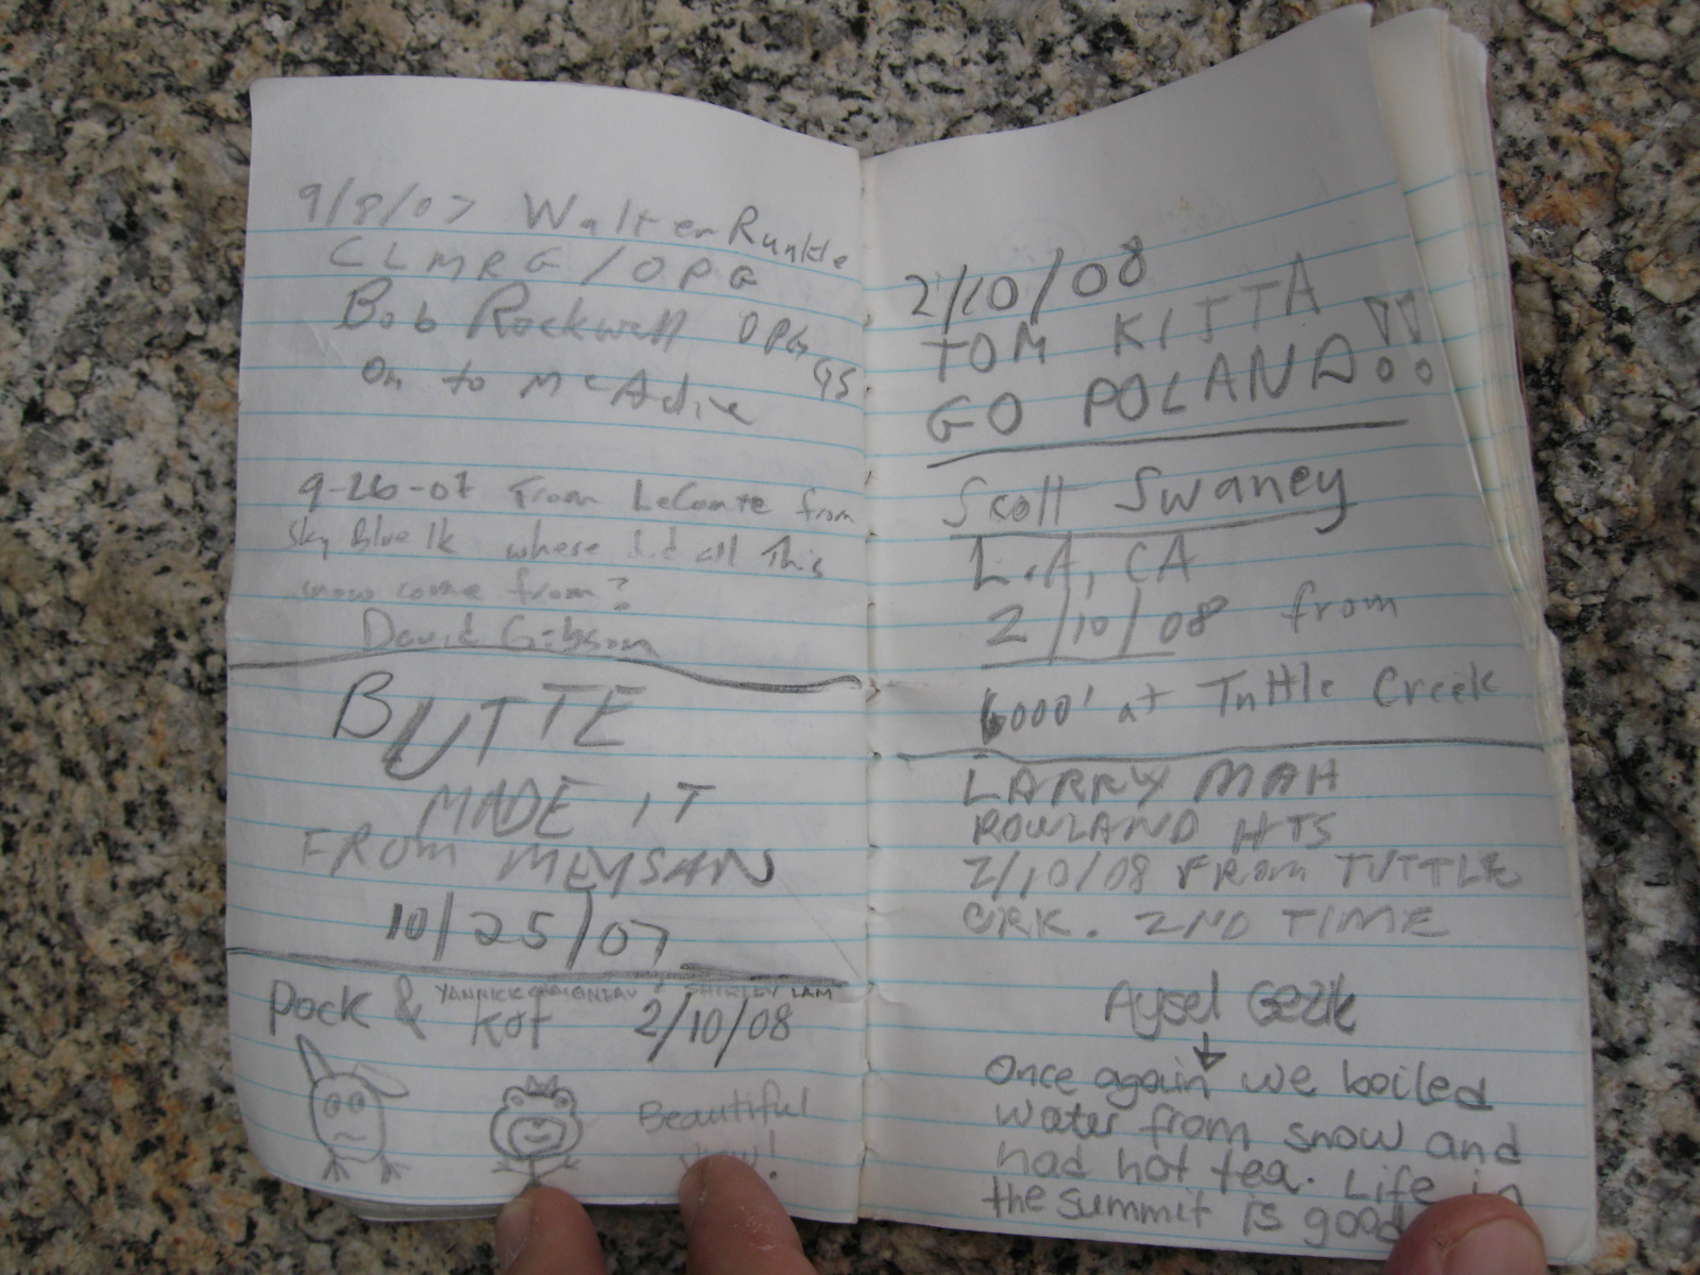 9/8/07 Walter Runkle
CLMRG/OPG
Bob Rockwell OPG
GS
On to McAdie
9-26-07 From LeConte from
Sky Blue lk where did all This
snow come from?
David Gibson
BUTTE
MADE IT
FROM MEYSAN
10/25/07
Pock & Kot 2/10/08
YANNICK & SHIRLEY LAM
Beautiful
view!
2/10/08
TOM KIJTTA
GO POLAND!!
Scott Swaney
L.A, CA
2/10/08 from
6000' at Tuttle Creek
LARRY MAH
ROWLAND HTS
2/10/08 FROM TUTTLE
CRK. 2ND TIME
Aysel Gezik
↓
Once again we boiled
water from snow and
had hot tea. Life in
the summit is good